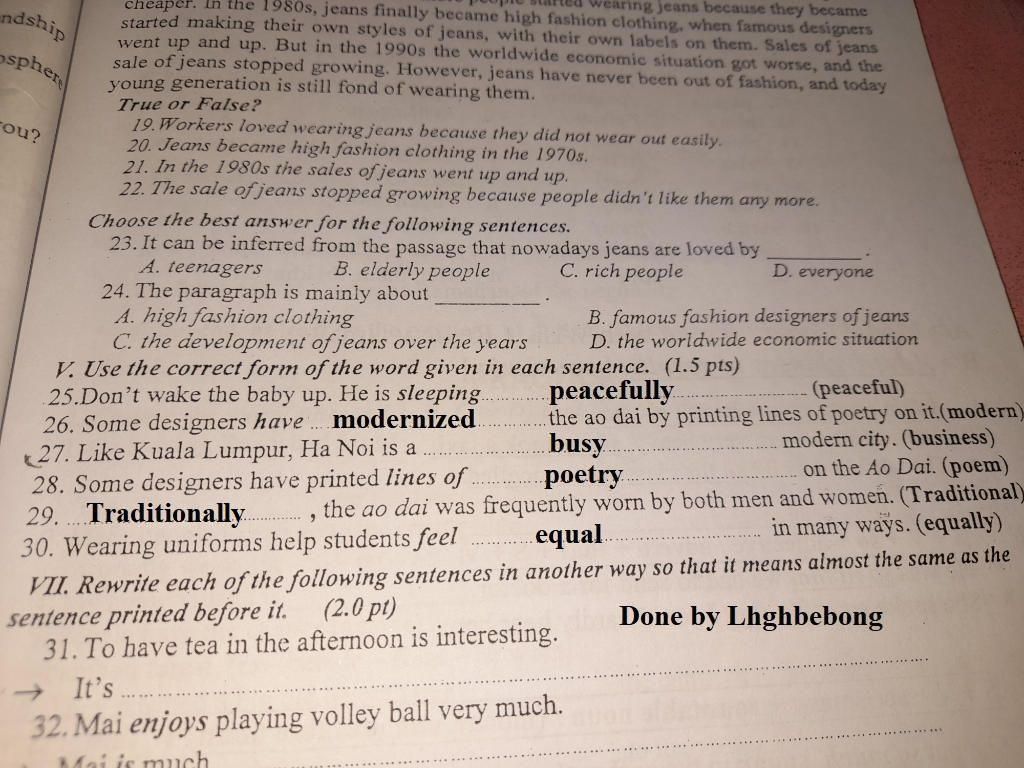 ndship
osphere
ou?
wearing jeans because they became
cheaper. In the 1980s, jeans finally became high fashion clothing, when famous designers
started making their own styles of jeans, with their own labels on them. Sales of jeans
went up and up. But in the 1990s the worldwide economic situation got worse, and the
sale of jeans stopped growing. However, jeans have never been out of fashion, and today
young generation is still fond of wearing them.
True or False?
19. Workers loved wearing jeans because they did not wear out easily.
20. Jeans became high fashion clothing in the 1970s.
21. In the 1980s the sales of jeans went up and up.
22. The sale of jeans stopped growing because people didn't like them any more.
Choose the best answer for the following sentences.
23. It can be inferred from the passage that nowadays jeans are loved by __________ .
A. teenagers B. elderly people C. rich people D. everyone
24. The paragraph is mainly about __________ .
A. high fashion clothing B. famous fashion designers of jeans
C. the development of jeans over the years D. the worldwide economic situation
V. Use the correct form of the word given in each sentence. (1.5 pts)
25.Don't wake the baby up. He is sleeping.......... peacefully .......... (peaceful)
26. Some designers have .... modernized .......... the ao dai by printing lines of poetry on it.(modern)
27. Like Kuala Lumpur, Ha Noi is a .......... busy .......... modern city. (business)
28. Some designers have printed lines of .......... poetry .......... on the Ao Dai. (poem)
29. .... Traditionally .......... , the ao dai was frequently worn by both men and women. (Traditional)
30. Wearing uniforms help students feel .......... equal .......... in many ways. (equally)
VII. Rewrite each of the following sentences in another way so that it means almost the same as the
sentence printed before it. (2.0 pt)
Done by Lhghbebong
31. To have tea in the afternoon is interesting.
→ It's ..............................
32. Mai enjoys playing volley ball very much.
Mai is much ..............................